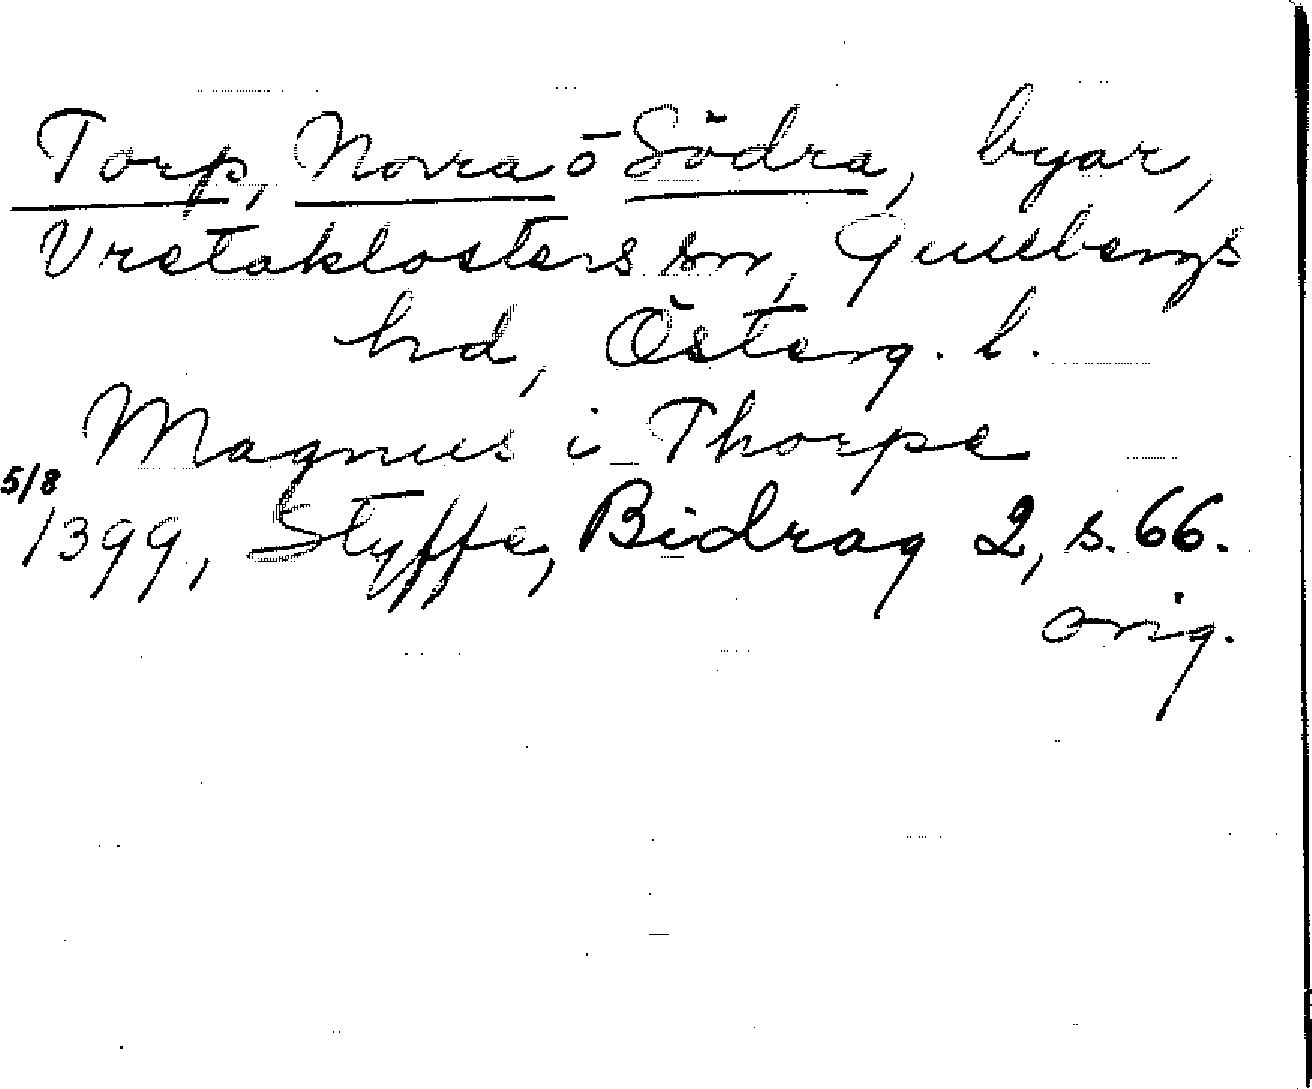 Torp, Norra ō Södra, byar,
Vretaklosters sn, Gullbergs
hd, Österg. l.
Magnus i Thorpe
5/8
1399, Styffe, Bidrag 2, s. 66.
orig.